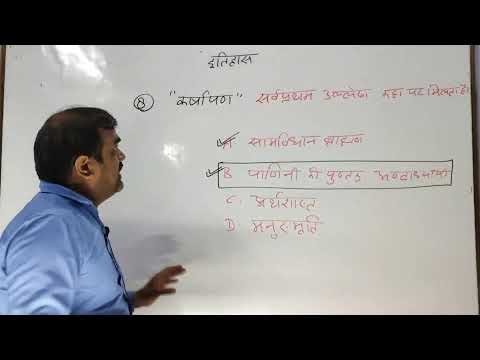 इतिहास
Q "कर्षापण" सर्वप्रथम उल्लेख कहा पर मिलता है।
A सामविधान ब्राह्मण
B पाणिनी की पुस्तक अष्टाध्यायी
C. अर्थशास्त्र
D. मनुस्मृति